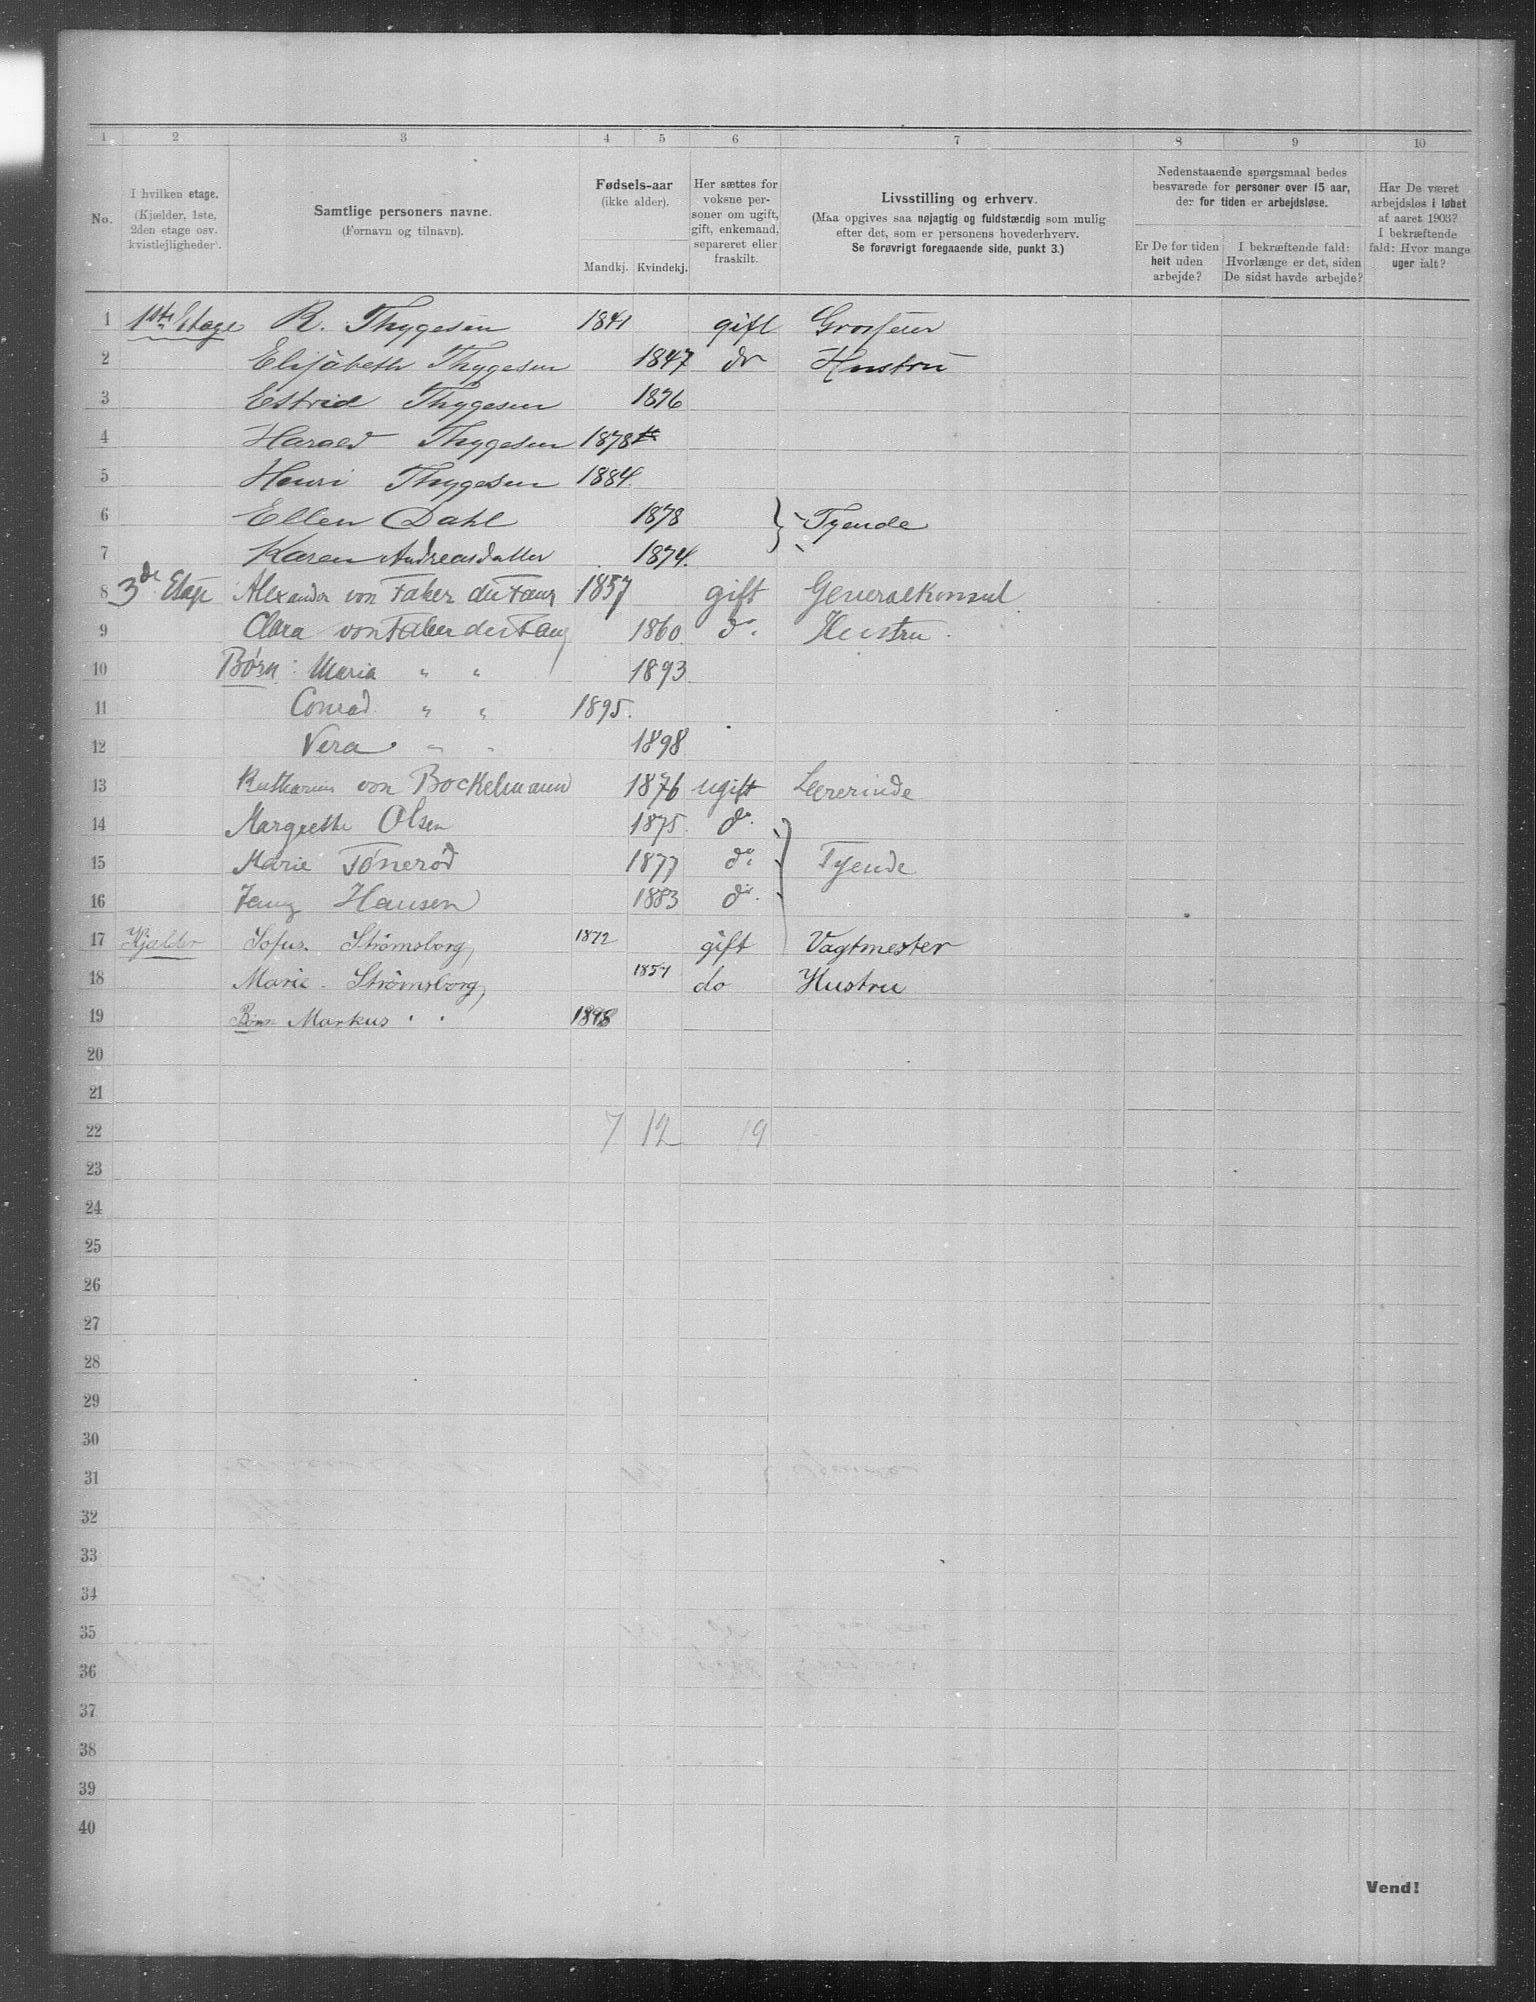 1 2 3 4 5 6 7 8 9 10
No.
I hvilken etage.
(Kjælder, 1ste,
2den etage osv.
kvistlejligheder).
Samtlige personers navne.
(Fornavn og tilnavn).
Fødsels-aar
(ikke alder).
Mandkj. Kvindekj.
Her sættes for
voksne per-
soner om ugift,
gift, enkemand,
separeret eller
fraskilt.
Livsstilling og erhverv.
(Maa opgives saa nøjagtig og fuldstændig som mulig
efter det, som er personens hovederhverv.
Se forøvrigt foregaaende side, punkt 3.)
Nedenstaaende spørgsmaal bedes
besvarede for personer over 15 aar,
der for tiden er arbejdsløse.
Er De for tiden
helt uden
arbejde?
I bekræftende fald:
Hvorlænge er det, siden
De sidst havde arbejde?
Har De været
arbejdsløs i løbet
af aaret 1903?
I bekræftende
fald: Hvor mange
uger ialt?
1 1ste Etage R. Thygesen 1841 gift Grosserer
2 Elisabeth Thygesen 1847 do Hustru
3 Estrid Thygesen 1876
4 Harald Thygesen 1878
5 Henri Thygesen 1884.
6 Ellen Dahl 1878 } Tyende
7 Karen Andreasdatter 1874.
8 3de Etage Alexander von Faber du Faur 1857 gift Generalkonsul
9 Clara von Faber du Faur 1860 do. Hustru.
10 Børn: Maria " " 1893
11 Conrad " " 1895.
12 Vera " " 1898
13 von Bockelmann 1876 ugift Lererinde
14 Margrethe Olsen 1875. do.
15 Marie Tønerød 1877 do. } Tyende
16 Jenny Hansen 1883 do.
17 Kjælder Sofus. Strømsborg, 1872 gift Vagtmester
18 Marie. Strømsborg, 1857 do Hustru
19 Børn Markus " " 1898
20
21
22 7 12 19
23
24
25
26
27
28
29
30
31
32
33
34
35
36
37
38
39
40
Vend!